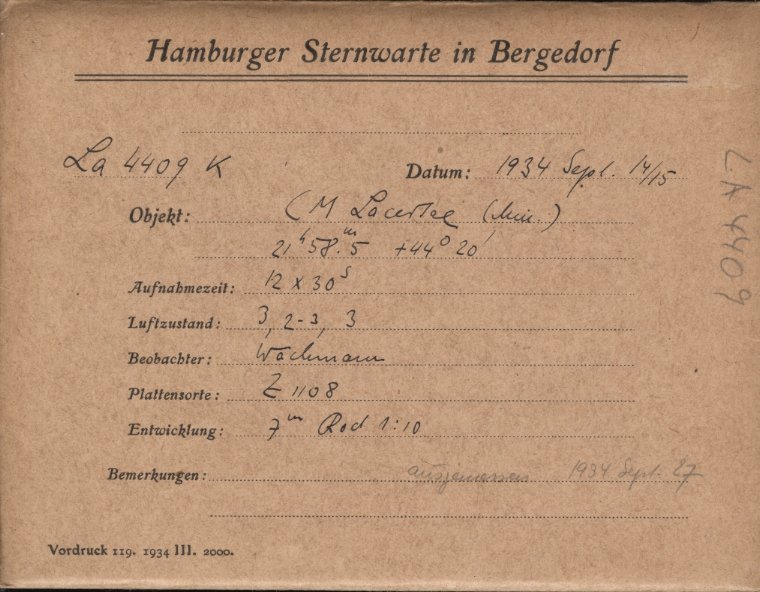 Hamburger Sternwarte in Bergedorf
La 4409 K
Datum: 1934 Sept. 14/15
Objekt: CM Lacertae (Min.)
21ʰ 58.ᵐ5 +44° 20'
Aufnahmezeit: 12 x 30ˢ
Luftzustand: 3, 2-3, 3
Beobachter: Wachmann
Plattensorte: Z 1108
Entwicklung: 7ᵐ Rod 1:10
Bemerkungen: ausgemessen 1934 Sept. 27
Vordruck 119. 1934 III. 2000.
LA 4409